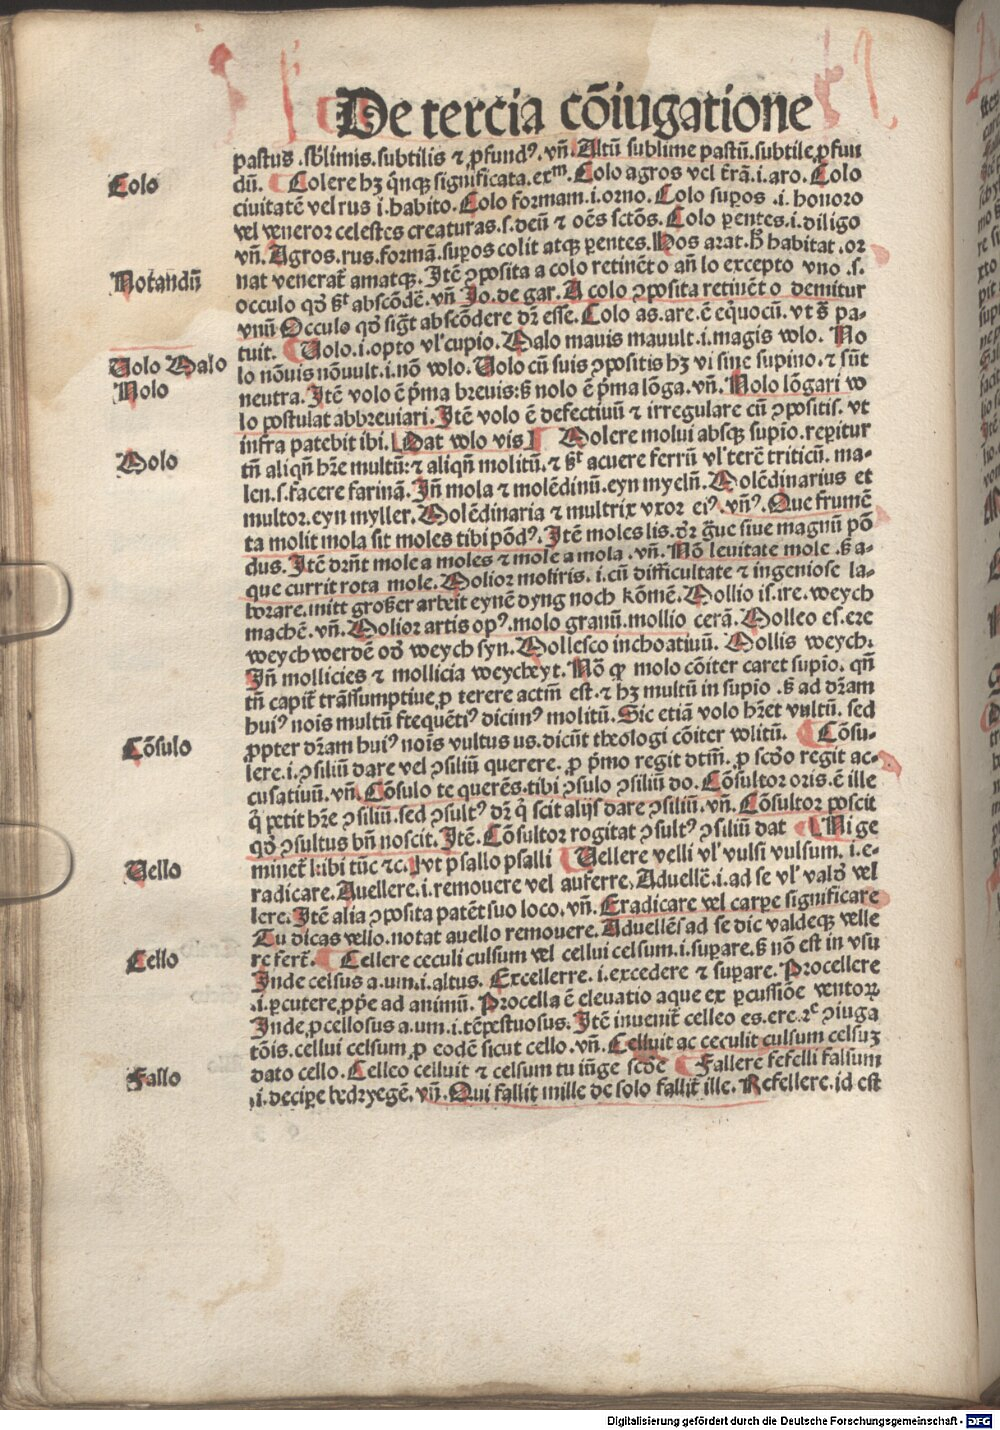 De tercia cōiugatione
pastus .sb̄limis.subtilis ⁊ ꝓfundꝰ. vñ. Altū sublime pastū.subtile ꝓfun
Colo
dū. Colere hꝫ q̇nqꝫ significata.exᵐ. Colo agros vel t̄rā.i.aro. Colo
ciuitatē vel rus i.habito. Colo formam.i.orno. Colo suꝑos .i.honoro
vel veneror celestes creaturas.s.deū ⁊ oēs sctōs. Colo ꝑentes.i.diligo
vñ. Agros.rus.formā.suꝑos colit atqꝫ ꝑentes. Hos arat.h̄ habitat.or
Notandū
nat venerat̄ amatqꝫ. Itē ꝯposita a colo retinēt o añ lo excepto vno .s.
occulo qđ ē abscōdē. vñ Jo.de gar. A colo ꝯposita retinēt o demitur
vnū Occulo qđ sigt̄ abscōdere dr̄ esse. Colo as.are.ē eq̇uocū. vt s̄ pa-
tuit. Uolo.i.opto vl' cupio. Malo mauis mauult.i.magis volo. No
Uolo Malo
lo nōuis nōuult.i.nō volo. Uolo cū suis ꝯpositis hꝫ vi sine supino. ⁊ sūt
Nolo
neutra. Itē volo ē p̄ma breuis:sꝫ nolo ē p̄ma lōga. vñ. Nolo lōgari vo
lo postulat abbreuiari. Itē volo ē defectiuū ⁊ irregulare cū ꝯpositis. vt
infra patebit ibi. [Dat volo vis] Molere molui absqꝫ supio.reꝑitur
Molo
tñ aliqñ hr̄e multū:⁊ aliqñ molitū.⁊ ē acuere ferrū vl' terē triticū. ma-
len.s.facere farinā. Iñ mola ⁊ molēdinū.eyn myelñ. Molēdinarius et
multor.eyn myller. Molēdinaria ⁊ multrix vxor eiꝰ. vñꝰ. Que frumē
ta molit mola sit moles tibi pōdꝰ. Itē moles lis. dr̄ g̃ue siue magnū pō
dus. Itē dr̄nt mole a moles ⁊ mole a mola .vñ. Nō leuitate mole .sꝫ a-
que currit rota mole. Molior moliris.i.cū difficultate ⁊ ingeniose la-
borare.mitt großer arbeit eynē dyng noch kōmē. Mollio is.ire.weych
machē. vñ. Molior artis opꝰ.molo granū.mollio cerā. Molleo es.ere
weych werdē odꝰ weych syn. Mollesco inchoatiuū. Mollis weych.
Iñ mollicies ⁊ mollicia weycheyt. Nō ꝙ molo cōiter caret supio. qñ
tñ capit̄ trāssumptiue ꝓ terere actm̄ est.⁊ hꝫ multū in supio .sꝫ ad dr̄am
huiꝰ nois multū ftequētiꝰ dicimꝰ molitū. Sic etiā volo hr̄et vultū. sed
Cōsulo
ꝓpter dr̄am huiꝰ nois vultus us.dicūt theologi cōiter volitū. Cōsu-
lere.i.ꝯsiliū dare vel ꝯsiliū querere. ꝓ p̄mo regit dtm̄. ꝓ scđo regit ac-
cusatiuū. vñ. Cōsulo te querēs.tibi ꝯsulo ꝯsiliū do. Cōsultor oris.ē ille
q̇ petit hr̄e ꝯsiliū.sed ꝯsultꝰ dr̄ q̇ scit alijs dare ꝯsiliū. vñ. Cōsultor poscit
qđ ꝯsultus bñ noscit. Itē. Cōsultor rogitat ꝯsultꝰ ꝯsiliū dat [Ni ge
Uello
minet̄ l:tibi tūc ⁊c.] vt psallo psalli Uellere velli vl' vulsi vulsum. i.e-
radicare. Auellere.i.remouere vel auferre, Aduellē.i.ad se vl' valdꝰ vel
lere. Itē alia ꝯposita patēt suo loco. vñ. Eradicare vel carpe significare
Tu dicas vello.notat auello remouere. Aduellēs ad se dic valdeqꝫ velle
Cello
re ferē. Cellere ceculi culsum vel cellui celsum.i.suꝑare.sꝫ nō est in vsu
Inde celsus a.um.i.altus. Excellerre.i.excedere ⁊ suꝑare. Procellere
.i.ꝑcutere.ꝓp̄e ad animū. Procella ē eleuatio aque ex ꝑcussiōe ventoꝝ
Inde ꝓcellosus a.um.i.tēpestuosus. Itē inuenit̄ celleo es.ere.ꝛᶜ ꝯiuga
tōis.cellui celsum.ꝓ eodē sicut cello. vñ. Celluit ac ceculit culsum celsuꝫ
Fallo
dato cello. Celleo celluit ⁊ celsum tu iūge scđe Fallere fefelli falsum
.i.deciꝑe bedryegē. vñ. Qui fallit mille de solo fallit̄ ille. Refellere.id est
Digitalisierung gefördert durch die Deutsche Forschungsgemeinschaft - DFG